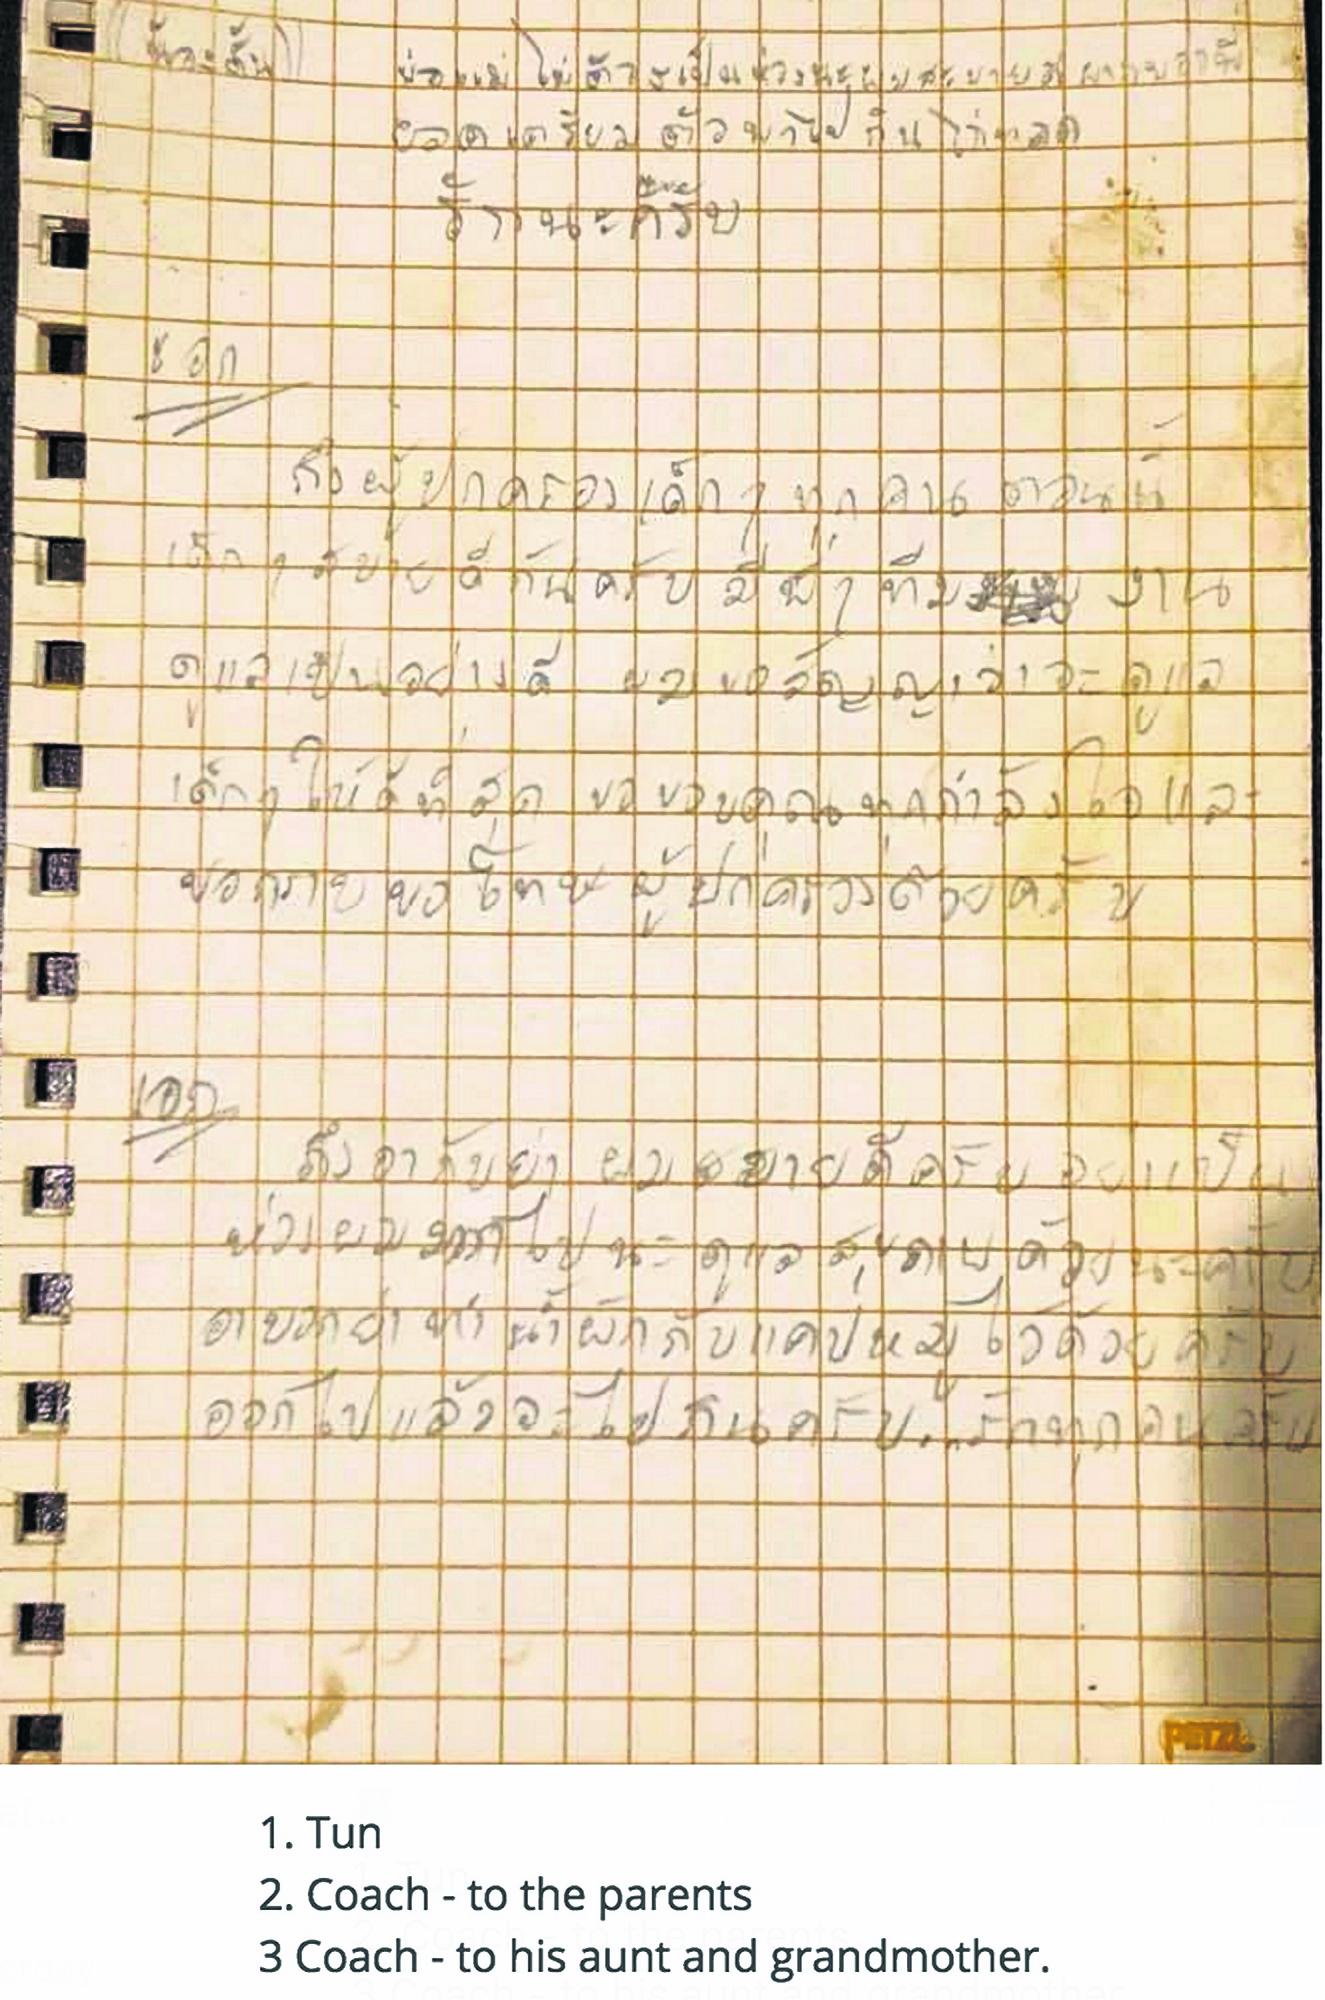 พ่อแม่ไม่ต้องเป็นห่วงนะผมสบายดี
เตรียมตัวพาไปกินไก่ทอด
ด้วยนะครับ
เอก
ถึงผู้ปกครองเด็กๆทุกคน ตอนนี้
เด็กๆสบายดีกันครับ มีพี่ๆทีม งาน
ดูแลเป็นอย่างดี ผมขอสัญญาว่าจะดูแล
เด็กๆให้ดีที่สุด ขอขอบคุณทุกกำลังใจและ
ขอกราบขอโทษผู้ปกครองด้วยครับ
เอก
ถึงอากับย่า ผมสบายดีครับ อย่าเป็น
ห่วงผม ไปนะ ดูแลสุขภาพด้วยนะครับ
อาบอกย่าทำน้ำผักกับแคปหมูไว้ด้วยครับ
ออกไปแล้วจะไปกินครับ...รักทุกคนครับ
PETZL
1. Tun
2. Coach - to the parents
3 Coach - to his aunt and grandmother.